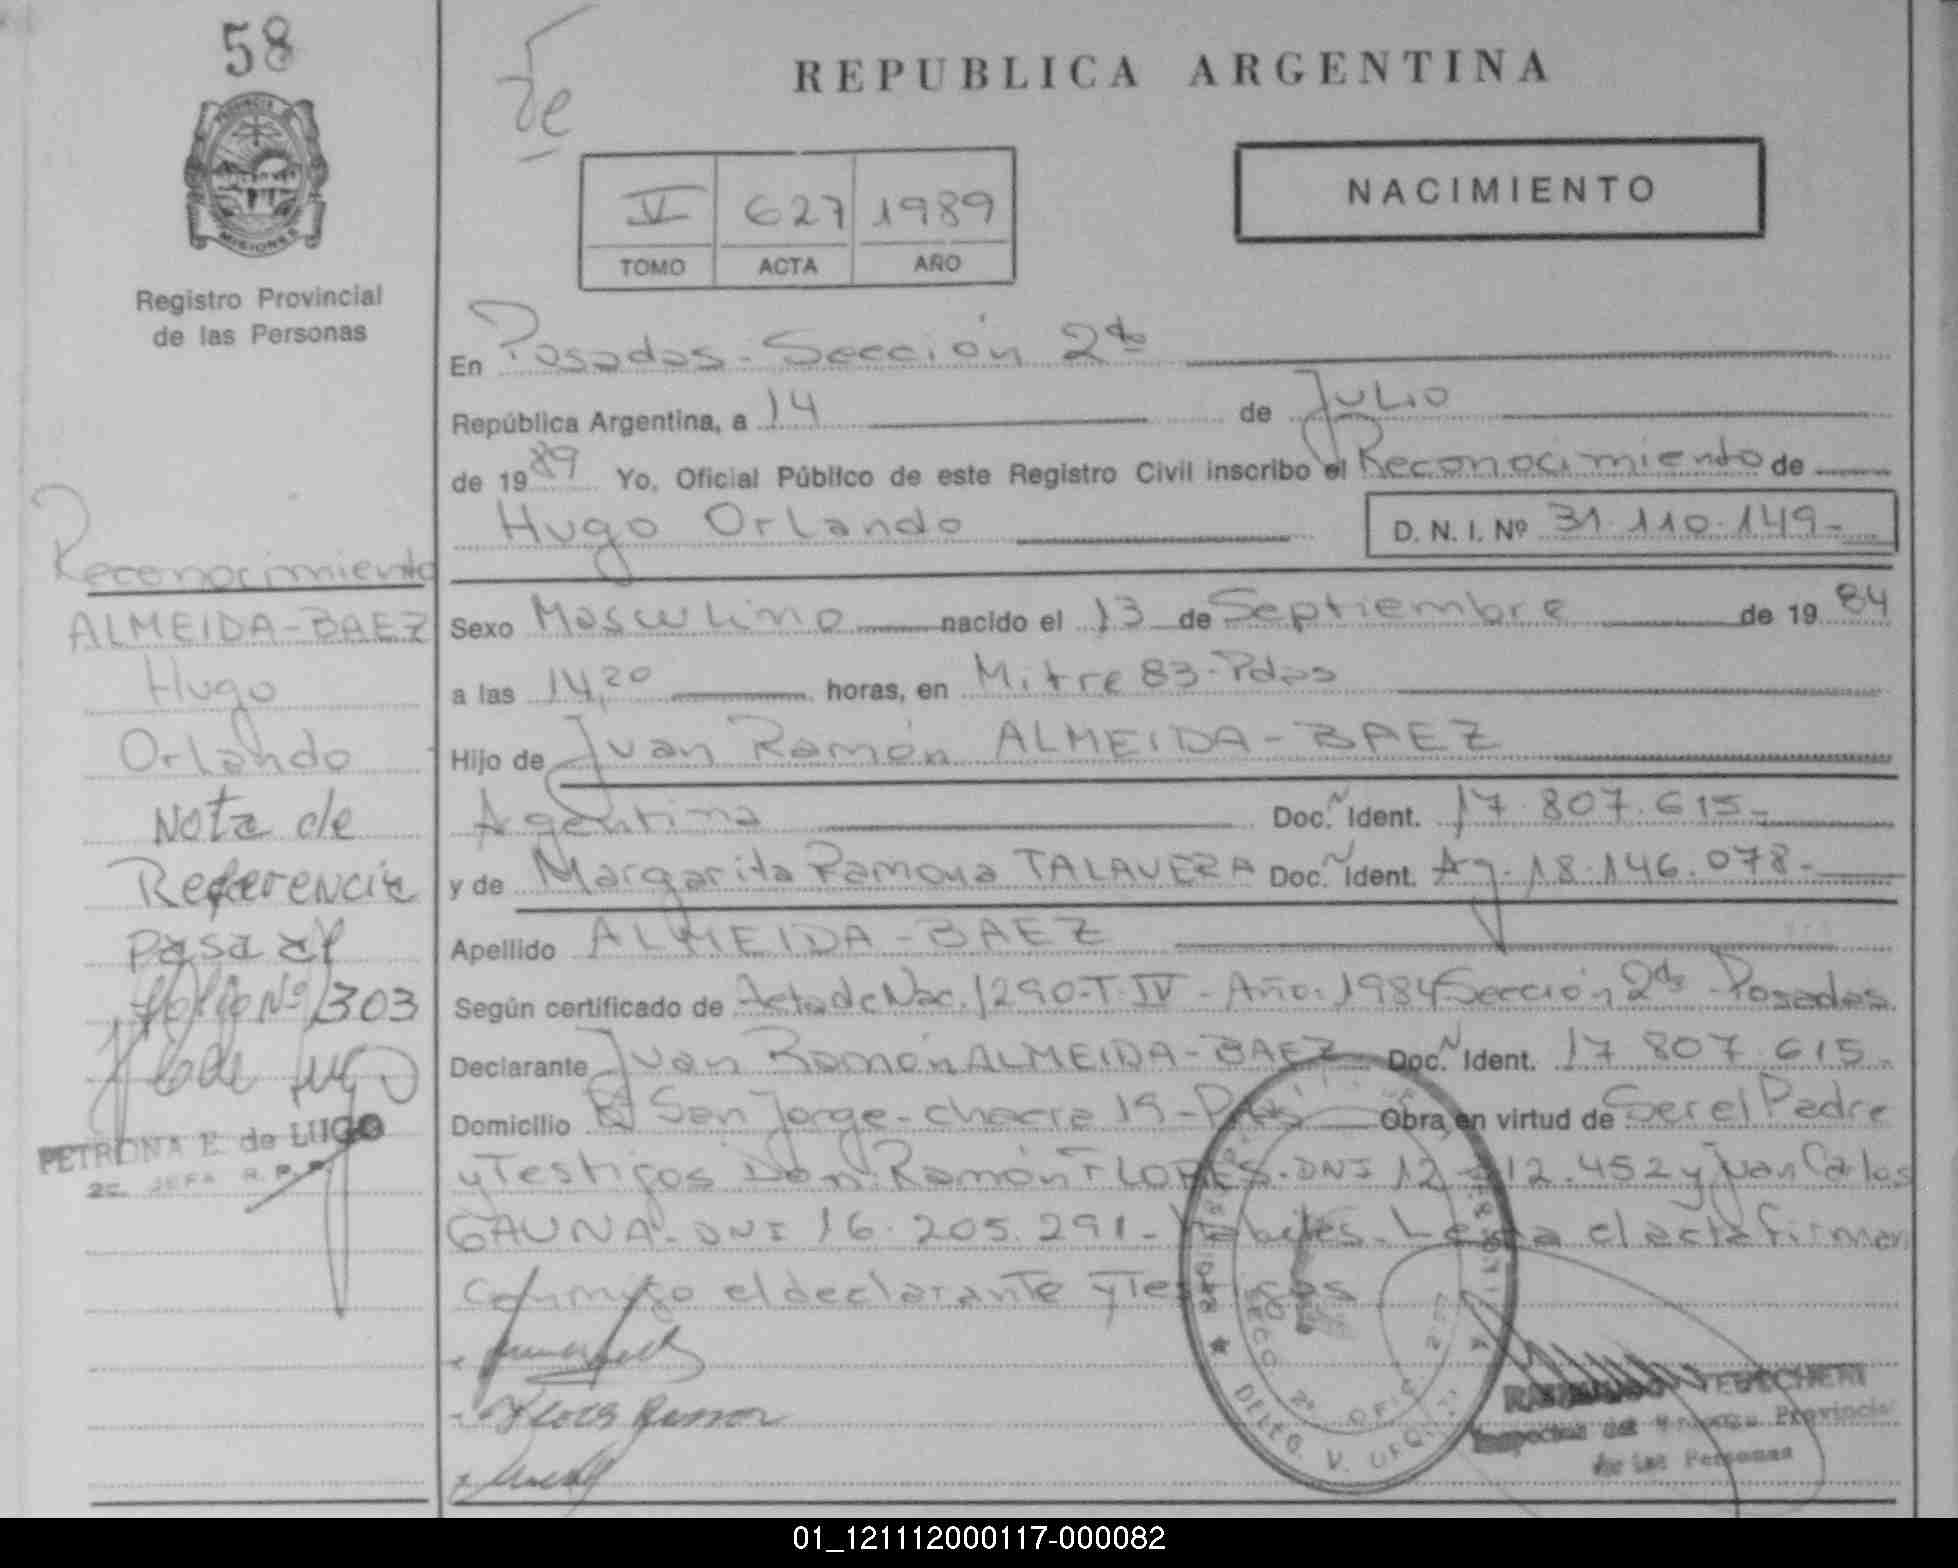 58
MISIONES
Registro Provincial
de las Personas
Reconocimiento
ALMEIDA-BAEZ
Hugo
Orlando
Nota de
Referencia
Pasa al
folio Nº 303
PETRONA E. de LUGO
JEFA R.P.P.
REPUBLICA ARGENTINA
NACIMIENTO
V 627 1989
TOMO ACTA AÑO
En Posadas - Sección 2da
República Argentina, a 14 de Julio
de 1989 Yo, Oficial Público de este Registro Civil inscribo el Reconocimiento de
Hugo Orlando D. N. I. Nº 31.110.149-
Sexo Masculino nacido el 13 de Septiembre de 1984
a las 14,20 horas, en Mitre 83-Pdas
Hijo de Juan Ramón ALMEIDA-BAEZ
Argentina Doc. Ident. 17.807.615-
y de Margarita Ramona TALAVERA Doc. Ident. Arg. 18.146.078-
Apellido ALMEIDA-BAEZ
Según certificado de Acta de Nac. 1290-T-IV-Año: 1984 Sección 2da Posadas
Declarante Juan Ramón ALMEIDA-BAEZ Doc. Ident. 17 807.615-
Domicilio San Jorge-chacra 19-Pdas Obra en virtud de Ser el Padre
y Testigos Don: Ramón FLORES-DNI 12 12.452 y Juan Carlos
GAUNA-DNI 16.205.291- Habiles- Leida el acta firman
conmigo el declarante y Testigos
Flores Ramon
SECC 2ª OFIC.
DELEG. V. URQUI
Inspector del Provincial
de las Personas
01_121112000117-000082